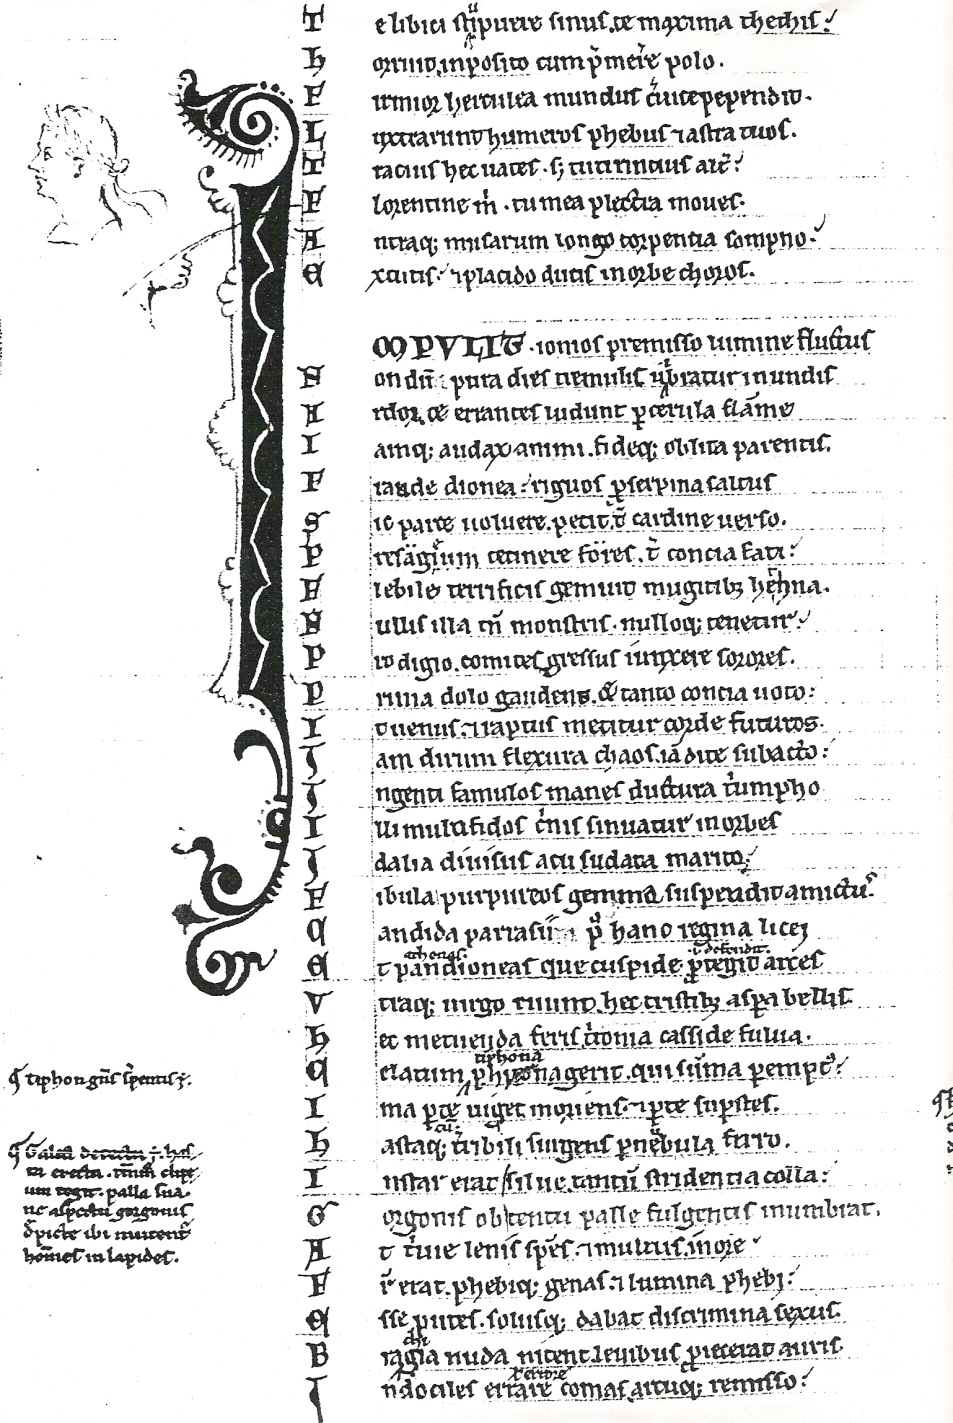 T e libici stupuere sinus. te maxima thethis.
h orruit. inposito cum p̄meret̄ polo.
F irmior herculea mundus c̄uice pependit.
L ustrarunt humeros phebus ⁊ astra tuos.
T racius hec uates. s; tu tirincius alt̄:
F lorentine m̄. tu mea plectra moues.
A ntraq; musarum longo torpentia sompno.
E xcitis. ⁊ placido ducis in orbe choros.
I MPVLIT. ionios premisso lumine fluctus
N on dū pura dies tremulis uibratur in undis
A rdor. et errantes ludunt ꝑ cerula flāme
I amq; audax animi. fideq; oblita parentis.
F raude dionea. riguos ꝓserpina saltus
S ic parce uoluere. petit. t̄ cardine uerso.
P resagium cecinere fores. t̄ concia fati:
F lebile terrificis gemuit mugitibꝫ hethna.
N ullis illa tn̄ monstris. nulloq; tenetur
P rodigio. comites gressus iunxere sorores.
P rima dolo gaudens. & tanto concita uoto:
I t uenus. ⁊ raptus metitur corde futuros.
I am dirum flexura chaos. iā dite subacto:
I ngenti famulos manes ductura t̄umpho
I lli multifidos c̄nis sinuatur in orbes
I dalia diuisus acu sudata marito.
F ibula purpureos gemma suspendit amictus.
C andida parrasii p9 hanc regina licei
athenas. .i. defendit.
E t pandioneas que cuspide ꝓtegit arces
V traq; uirgo ruunt. hec tristibꝫ aspa bellis.
h ec metuenda feris. t̄tonia casside fulua.
tiphona
C elatum phitona gerit. qui sūma ꝑempt9:
I ma ꝑte uiget moriens. ⁊ ꝑte supstes.
h astaq; t̄ribili surgens ꝑ nebula ferro.
I nstar erat silue. tantū stridentia colla:
G orgonis obtentu palle fulgentis inumbrat.
A t t̄uie lenis spēs. ⁊ multus in ore
F r̄ erat. phebiq; genas. ⁊ lumina phebi:
E sse putes. solusq; dabat discrimina sexus.
chi
B ragia nuda nitent. leuibus ꝓiecerat auris
I ndociles errare comas. arcuq; remisso:
¶ tiphon gn̄s s̄pentis ē.
¶ Galea
tu erecta
um tegit. palla sua.
ue aspectu gorgonis
d̄picte ibi mutent̄
homēs in lapides.